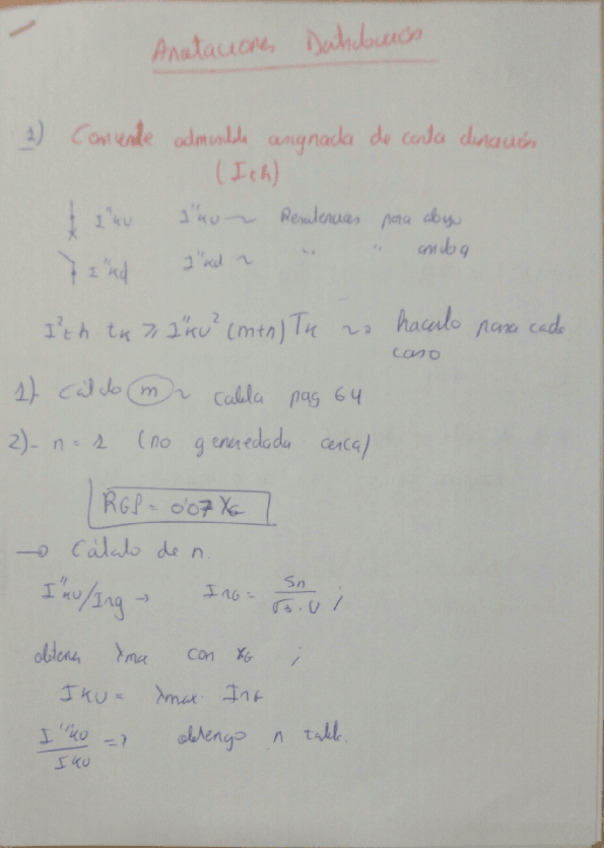 Anotaciones Distribución
1) Corriente admisible asignada de corta duración
(Ith)
I"ku I"ku ~ Resistencias para abajo
I"kd I"kd ~ " " arriba
I²th tk ≥ I"ku² (m+n) Tk ~> hacerlo para cada
caso
1)- Cálculo m ~ tabla pag 64
2)- n = 1 (no generador cerca)
RGf = 0'07 XG
→ Cálculo de n.
I"ku/Ing → InG = Sn / √3 · U ;
obtener λmax con XG ;
Iku = λmax · InG
I"ku / Iku => obtengo n tabla.